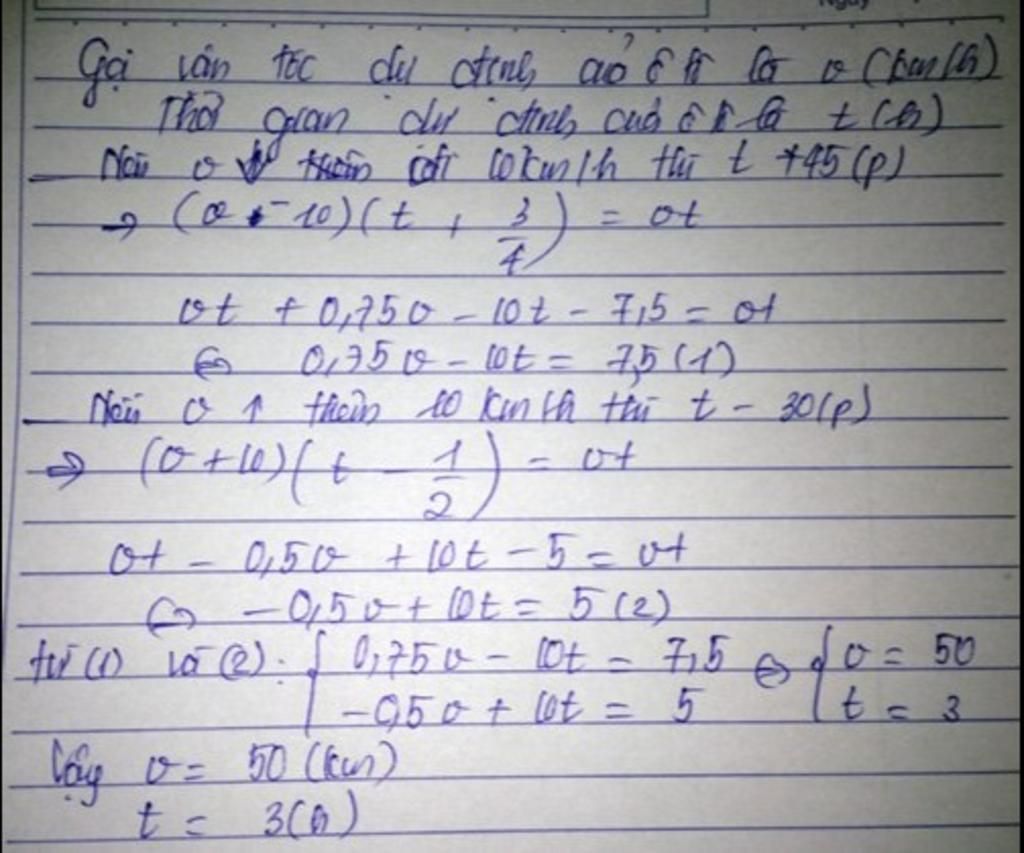 Gọi vận tốc dự định của ô tô là v (km/h)
Thời gian dự định của ô tô là t (h)
Nếu v ↓ 10km/h thì t +45(p)
=> (v - 10)(t + 3/4) = vt
vt + 0,75v - 10t - 7,5 = vt
<=> 0,75v - 10t = 7,5 (1)
Nếu v ↑ thêm 10 km/h thì t - 30(p)
=> (v + 10)(t - 1/2) = vt
vt - 0,5v + 10t - 5 = vt
<=> -0,5v + 10t = 5 (2)
từ (1) và (2): { 0,75v - 10t = 7,5 <=> { v = 50
-0,5v + 10t = 5 t = 3
Vậy v = 50 (km)
t = 3(h)